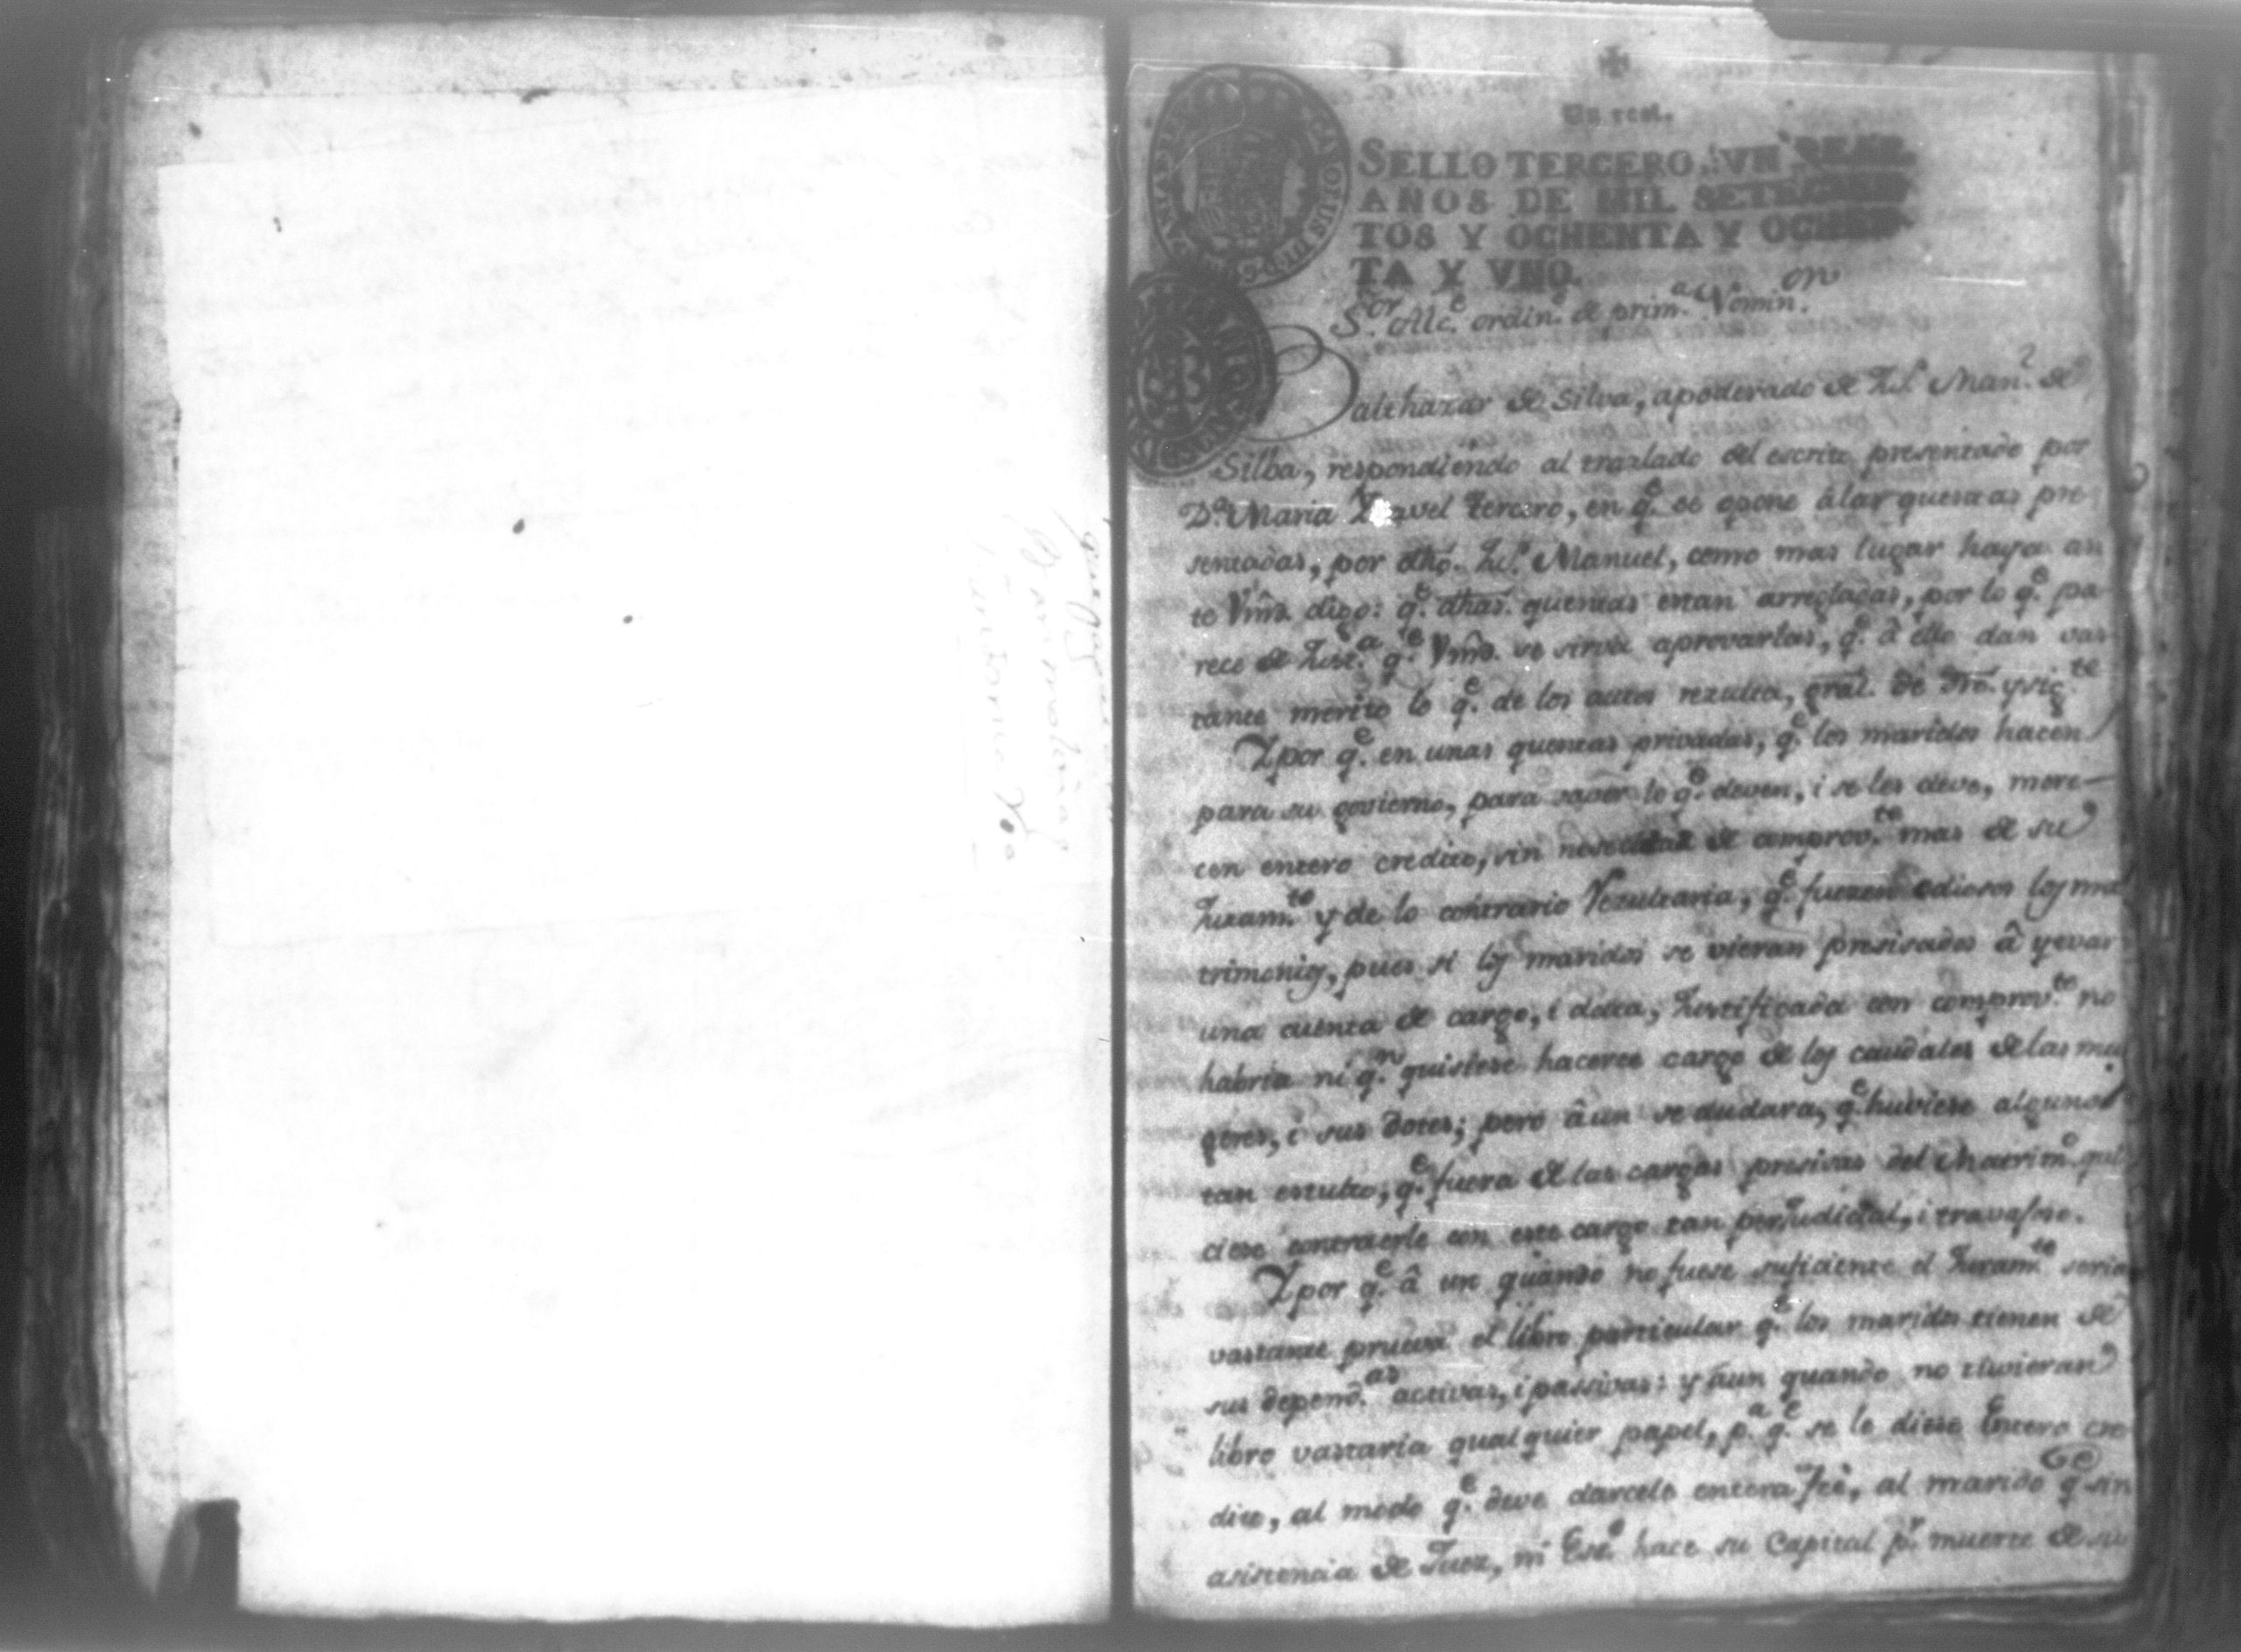 Un real.
SELLO TERCERO, VN REAL,
AÑOS DE MIL SETECIEN
TOS Y OCHENTA Y OCHEN-
TA Y VNO.
S.or Alc.e ordin.o de prim.a Nomin.on
Balthazar de Silva, apoderado de Jul.n Man.l de
Silba, respondiendo al trazlado del escrito presentado por
D.a Maria Ysavel Tercero, en q.e se opone álas quentas pre
sentadas, por dho. Jul.n Manuel, como mas lugar haya an
te Vmd. digo: q.e dhas. quentas estan arregladas, por lo q.e pa
rece de Just.a q.e Vmd. se sirva aprovarlas, q.e â ello dan vas
tante merito lo q.e de los autos rezulta, gral. de dro. y sig.te
Y por q.e en unas quentas privadas, q.e los maridos hacen
para su govierno, para saver lo q.e deven, i se les deve, mere-
cen entero credito, sin nesecidad de comprov.te mas de su
Juram.to y de lo contrario Rezultaria, q.e fuezen odiosos los ma
trimonios, pues si los maridos se vieran presisados â yevar
una cuenta de cargo, i data, Justificada con comprov.te no
habria ni q.n quisiese hacerce cargo de los caudales de las mu
geres, i sus dotes; pero âun se dudara, q.e huviese alguno
tan estulto, q.e fuera de las cargas presivas del Matrim.o qui
ciese contraerle con este cargo tan perjudicial, i travajoso.
Y por q.e â un quando no fuese suficiente el Juram.to seria
vastante prueva el libro particular q.e los maridos tienen de
sus depend.as activas, i passivas: y aun quando no tuvieran
libro vastaria qualquier papel, p.a q.e se le diese Entero cre
dito, al modo q.e deve darcele entera fee, al marido q.e sin
asistencia de Juez, ni Esc.o hace su Capital p.r muerte de su